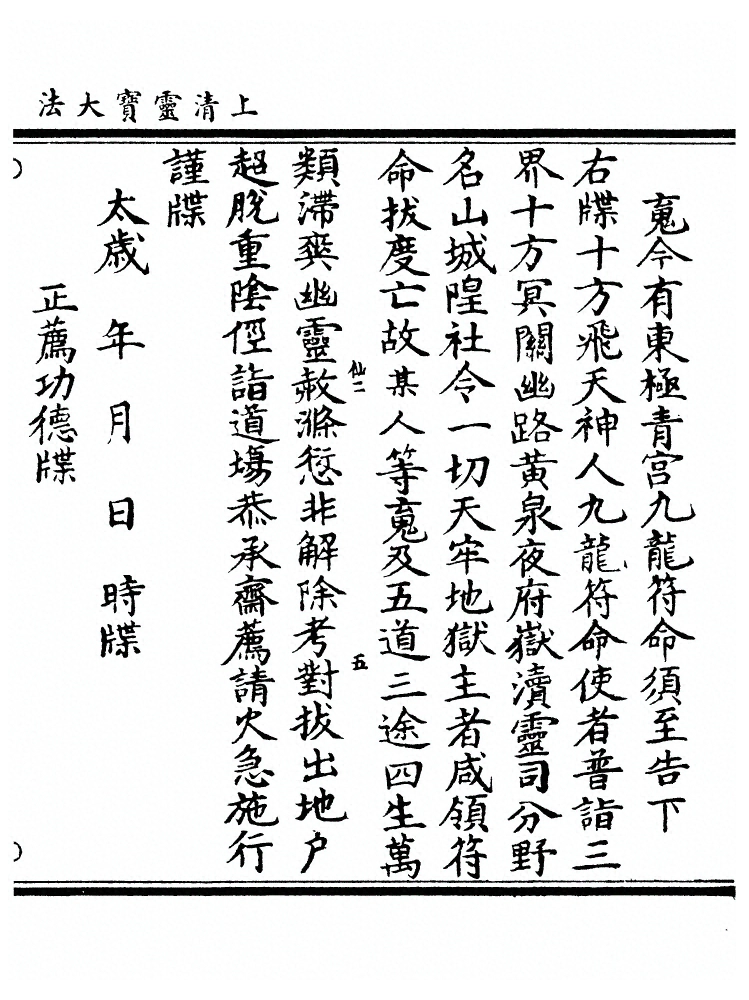 上清靈寶大法
䰟今有東極青宮九龍符命須至告下
右牒十方飛天神人九龍符命使者普詣三
界十方冥關幽路黃泉夜府嶽瀆靈司分野
名山城隍社令一切天牢地獄主者咸領符
命拔度亡故某人等䰟及五道三途四生萬
仙二
五
類滯爽幽靈赦滌愆非解除考對拔出地戶
超脫重陰徑詣道場恭承齋薦請火急施行
謹牒
太歲年月日時牒
正薦功德牒